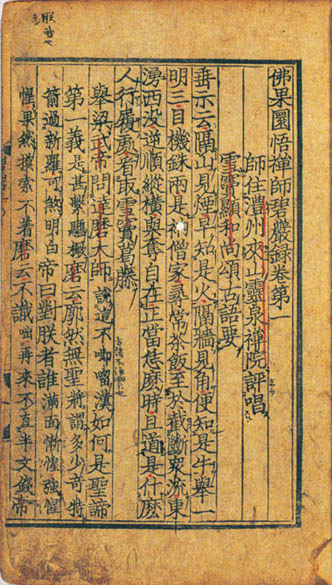 佛果圜悟禪師碧巖録卷第一
師住澧州夾山靈泉禪院評唱
雪竇顯和尚頌古語要
垂示云隔山見煙早知是火隔牆見角便知是牛舉一
明三目機銖兩是衲僧家尋常茶飯至於截斷衆流東
湧西沒逆順縱橫與奪自在正當恁麼時且道是什麼
人行履處看取雪竇葛藤
舉梁武帝問達磨大師說這不唧𠺕漢如何是聖諦
第一義是甚繫驢橛磨云廓然無聖將謂多少奇特
箭過新羅可煞明白帝曰對朕者誰滿面慚惶強惺
惺果然摸索不著磨云不識咄再來不直半文錢帝